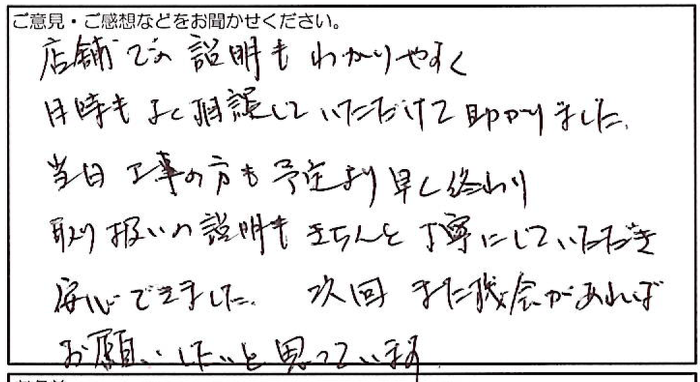 ご意見・ご感想などをお聞かせください。
店舗での説明もわかりやすく
日時もよく相談していただけて助かりました。
当日工事の方も予定より早く終わり
取り扱いの説明もきちんと丁寧にしていただき
安心できました。次回また機会があれば
お願いしたいと思っています